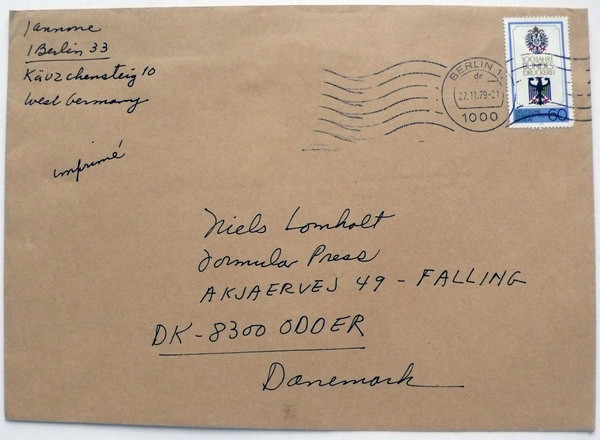 Iannone
1 Berlin 33
Käuzchensteig 10
West Germany
imprimé
BERLIN 12
dr
27.11.79-21
1000
100 JAHRE
BUNDES
DRUCKEREI
60
Niels Lomholt
Formular Press
AKJAERVEJ 49 - FALLING
DK-8300 ODDER
Danemark